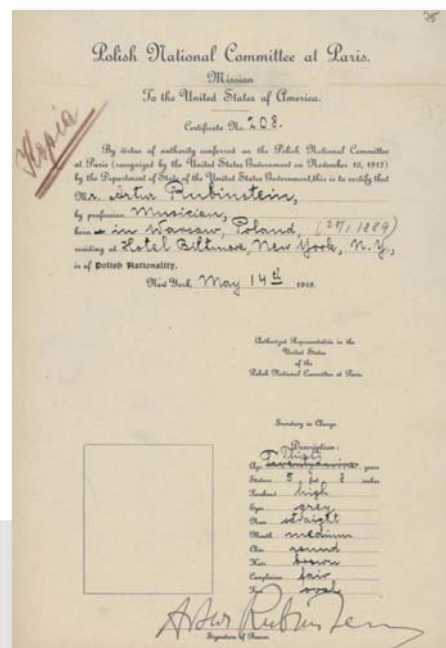 75
Polish National Committee at Paris.
Mission
To the United States of America.
Kopia
Certificate No. 208.
By virtue of authority conferred on the Polish National Committee
at Paris (recognized by the United States Government on November 10, 1917)
by the Department of State of the United States Government, this is to certify that
Mr. Artur Rubinstein,
by profession Musician,
born in Warsaw, Poland, (27/1 1889)
residing at Hotel Biltmore, New York, N. Y.,
is of Polish Nationality.
New York, May 14th 1919.
Authorized Representative in the
United States
of the
Polish National Committee at Paris.
Secretary in Charge.
Description:
Thirty
Age years
Stature 5 feet 8 inches
Forehead high
Eyes grey
Nose straight
Mouth medium
Chin round
Hair brown
Complexion fair
Face oval
Artur Rubinstein
Signature of Bearer